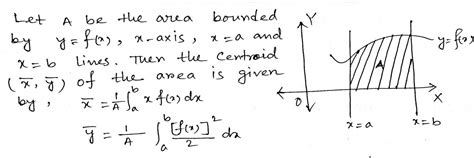 Let A be the area bounded
by y = f(x), x-axis, x = a and
x = b lines. Then the centroid
(x̅, y̅) of the area is given
by, x̅ = 1/A ∫_a^b x f(x) dx
y̅ = 1/A ∫_a^b [f(x)]²/2 dx
Y
y = f(x)
A
O
X
x = a
x = b